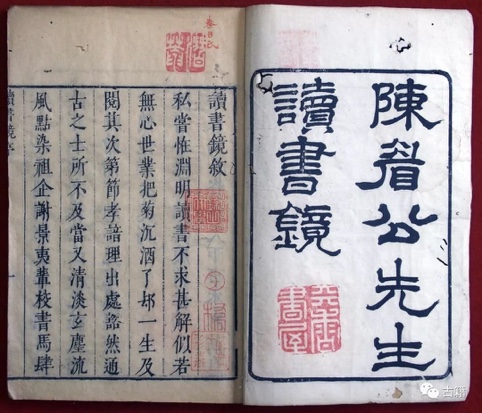 陳眉公先生
讀書鏡
讀書鏡敘
私嘗怪淵明讀書不求甚解似若
無心世業把菊沉酒了却一生及
閱其次第節孝諳理出處豁然通
古之士所不及當又清淡玄塵流
風點染祖企謝景夷輩校書馬肆
讀書鏡
古籍